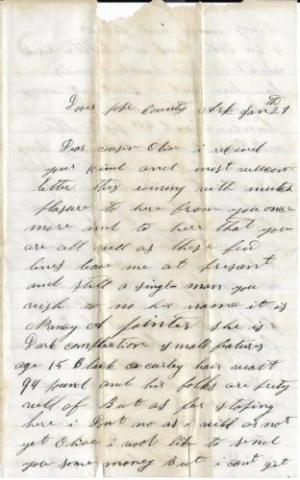 Dover pope County Ark Jan 29th
Dear cousin Olive i recived
your kind and most wellcom
letter this evining with much
plasure to here from you once
more and to here that you
are all well as these few
lines leave me at presant
and still a single man you
wish to no her name it is
Nancy A painter she is
Dark complection small features
age 15 Black curley hair wait
94 pound and her folks are prty
well of But as far stoping
here i Dont no as i will or not
yet Olive i woot like to send
you some money But i cant get